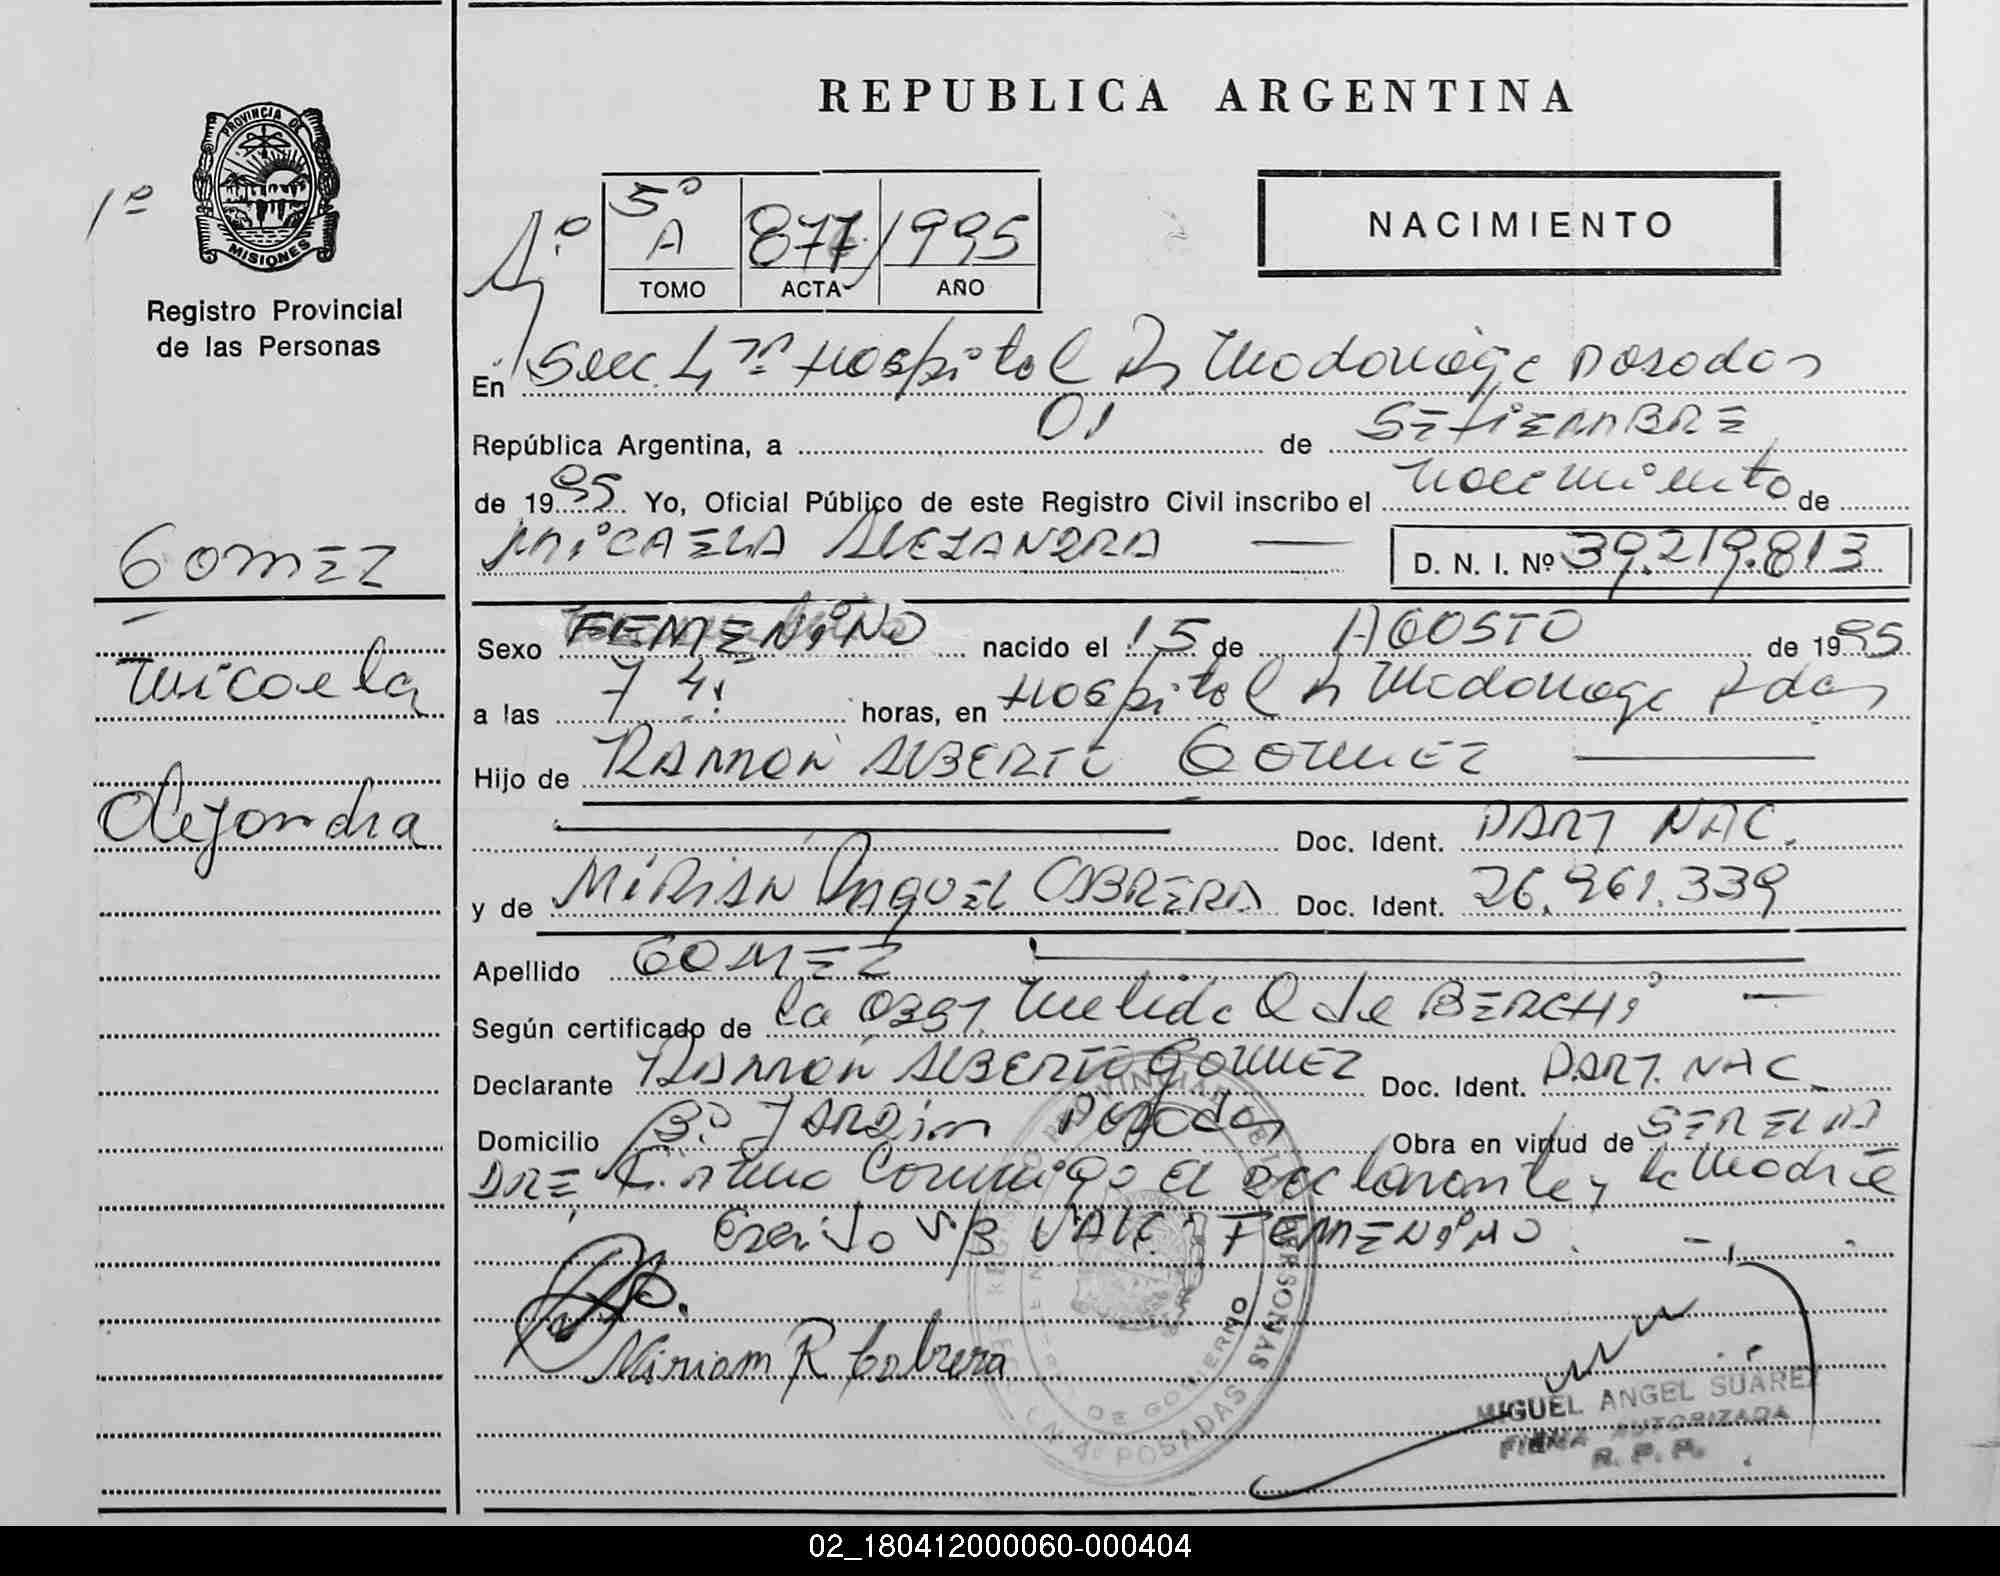 REPUBLICA ARGENTINA
PROVINCIA DE MISIONES
Registro Provincial
de las Personas
1º
5º
A 877 1995
TOMO ACTA AÑO
NACIMIENTO
En Secc. 4ª Hospital Dr Madariaga Posadas
República Argentina, a 01 de SETIEMBRE
de 1995 Yo, Oficial Público de este Registro Civil inscribo el nacimiento de
MICAELA ALEJANDRA D. N. I. Nº 39.219.813
GOMEZ
Micaela
Alejandra
Sexo FEMENINO nacido el 15 de AGOSTO de 1995
a las 7 horas, en Hospital Dr Madariaga Pdas
Hijo de RAMON ALBERTO GOMEZ
Doc. Ident. PART NAC.
y de MIRIAN RAQUEL CABRERA Doc. Ident. 26.961.339
Apellido GOMEZ
Según certificado de la OBST. Melida Q de BERCHI
Declarante RAMON ALBERTO GOMEZ Doc. Ident. PART. NAC.
Domicilio Bº JARDIN Posadas Obra en virtud de SER EL PA
DRE Firma Conmigo el declarante y la Madre
Escrito S/B VALE: FEMENINO.
Miriam R Cabrera
REGISTRO PROVINCIAL DE LAS PERSONAS
DE GOBIERNO
Nº 4º POSADAS
MIGUEL ANGEL SUAREZ
FIRMA AUTORIZADA
R. P. P.
02_180412000060-000404